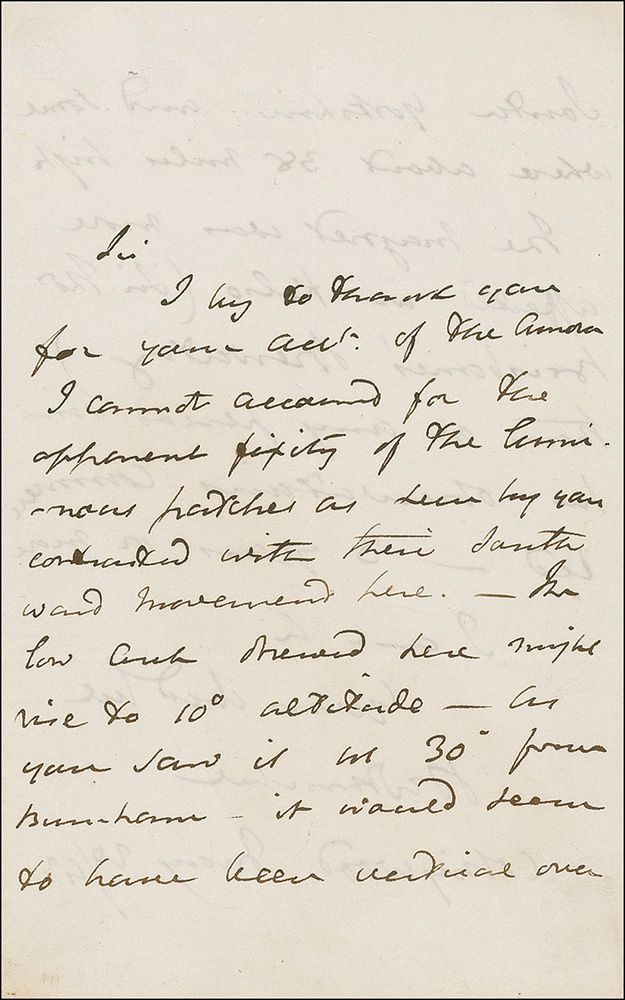 Sir
I beg to thank you
for your acct. of the Aurora
I cannot account for the
apparent fixity of the lumi-
-nous patches as seen by you
contrasted with their South
ward movement here. — The
low arch showed here might
rise to 10° altitude — as
you saw it at 30° from
Burnham – it would seem
to have been vertical over